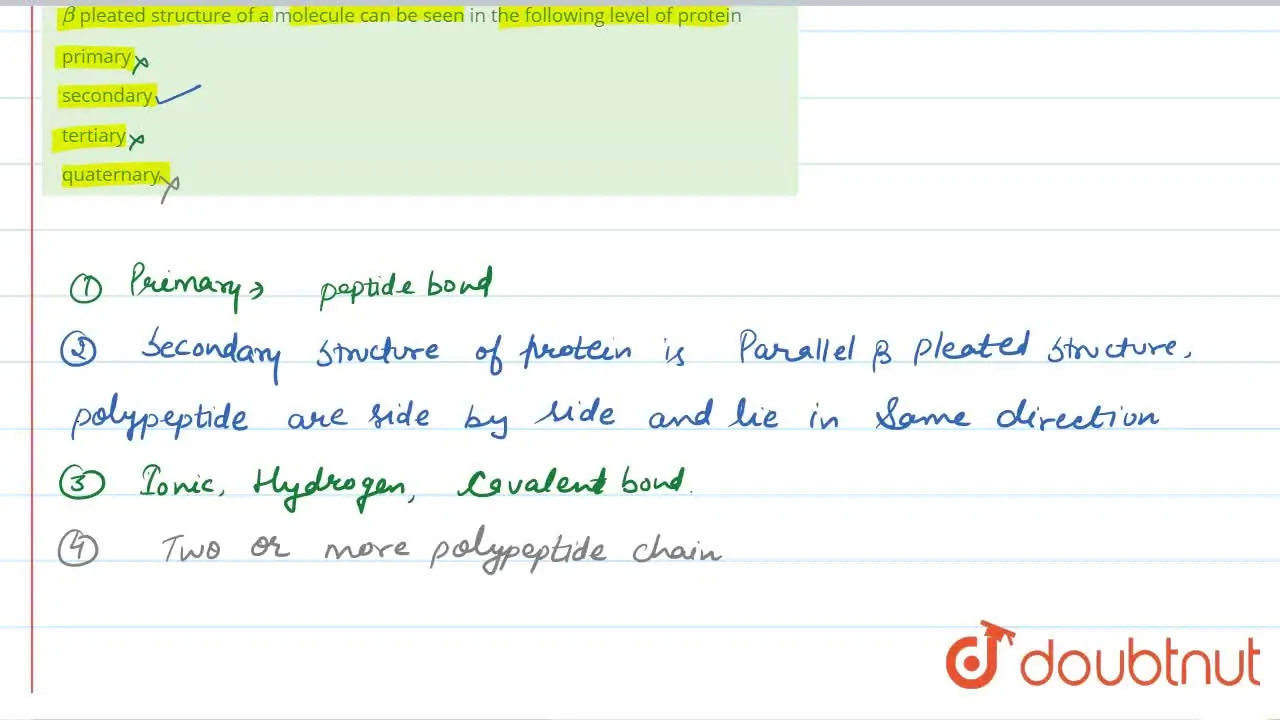 β pleated structure of a molecule can be seen in the following level of protein
primary
secondary
tertiary
quaternary
① Primary → peptide bond
② Secondary structure of protein is Parallel β pleated structure,
polypeptide are side by side and lie in same direction
③ Ionic, Hydrogen, Covalent bond.
④ Two or more polypeptide chain
doubtnut